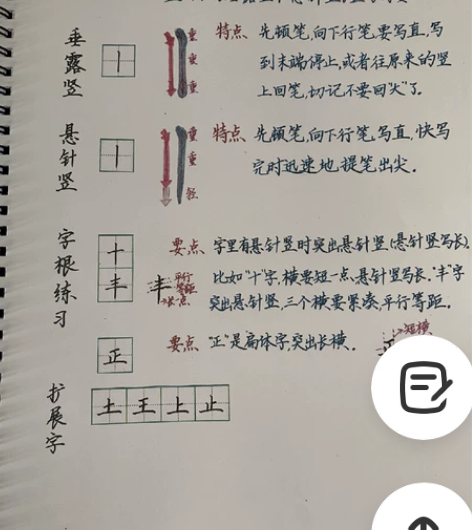 垂露竖
重
重
重
特点 先顿笔,向下行笔,要写直,写
到末端停止,或者往原来的竖
上回笔,切记不要回"尖"了.
悬针竖
重
重
轻
特点 先顿笔,向下行笔,写直,快写
完时迅速地,提笔出尖.
字根练习
十
丰
丰
平行
等距
要点 字里有悬针竖时突出悬针竖(悬针竖写长).
比如"十"字,横要短一点,悬针竖写长."丰"字
突出悬针竖,三个横要紧凑,平行等距.
正
要点 "正"是扁体字,突出长横.
短横
扩展字
土 王 上 止